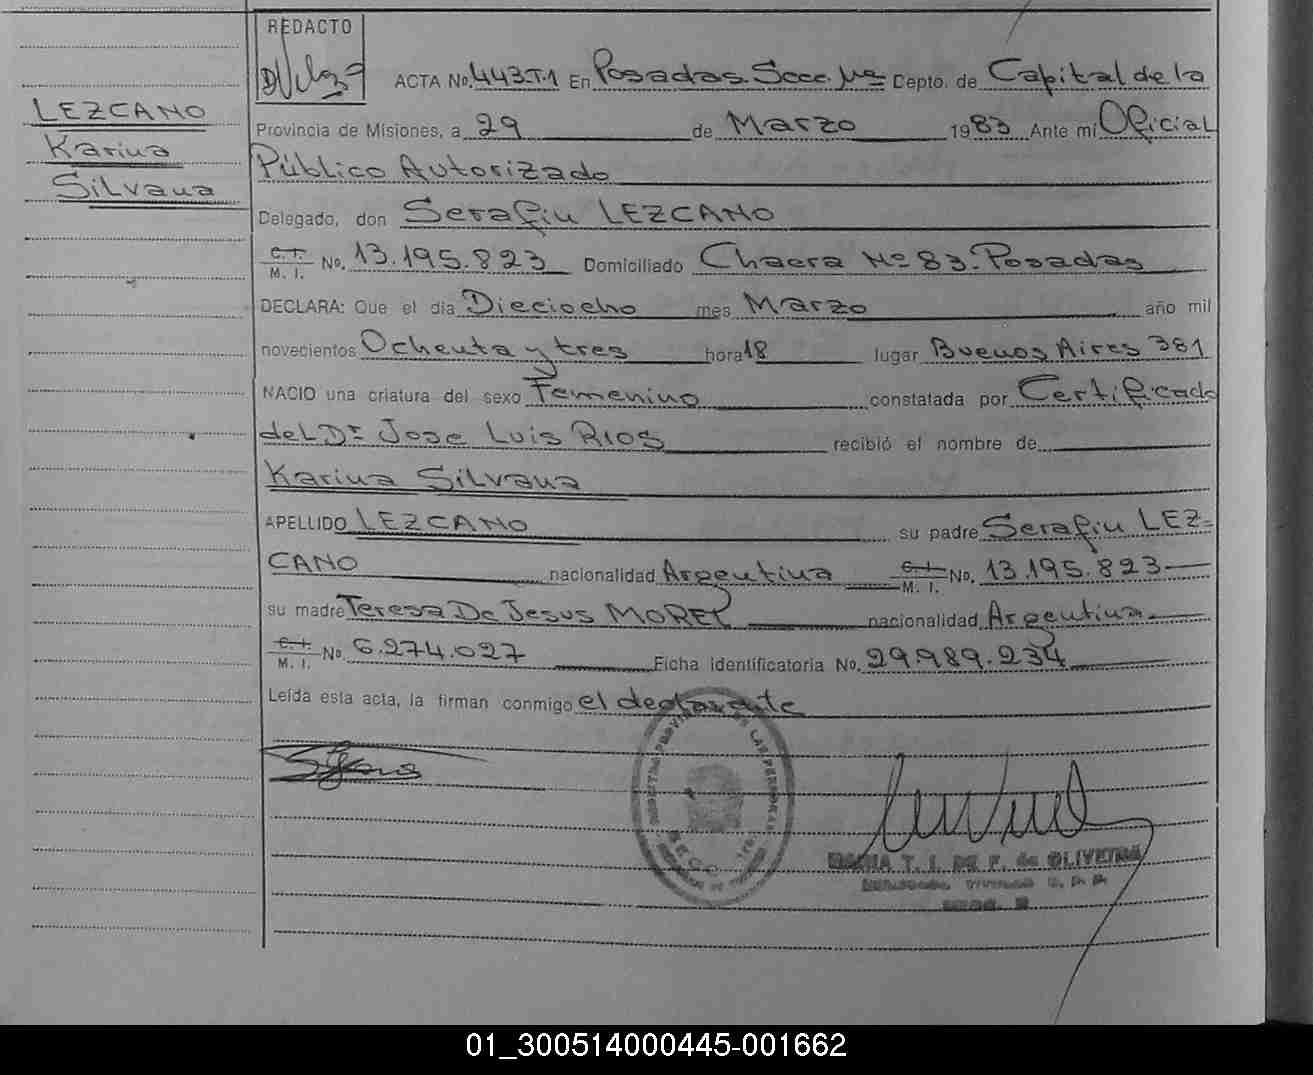 REDACTO
ACTA No. 443.T.1 En Posadas. Secc. Depto. de Capital de la
LEZCANO
Karina
Silvana
Provincia de Misiones, a 29 de Marzo 1983 Ante mí Oficial
Público Autorizado
Delegado, don Serafin LEZCANO
C. I.
M. I. No. 13.195.823 Domiciliado Chacra Nº 83. Posadas
DECLARA: Que el día Dieciocho mes Marzo año mil
novecientos Ochenta y tres hora 18 lugar Buenos Aires 381
NACIO una criatura del sexo Femenino constatada por Certificado
del Dr Jose Luis RIOS recibió el nombre de
Karina Silvana
APELLIDO LEZCANO su padre Serafin LEZ-
CANO nacionalidad Argentina C. I. M. I. No. 13.195.823
su madre Teresa De Jesus MOREL nacionalidad Argentina
C. I.
M. I. No 6.274.027 Ficha identificatoria No. 29.989.234
Leída esta acta, la firman conmigo el declarante
MARIA T. I. DE F. de OLIVEIRA
01_300514000445-001662